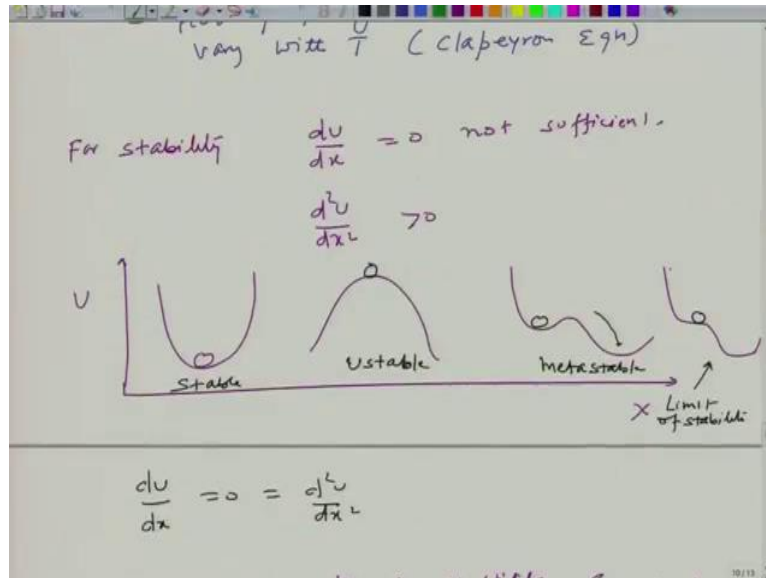 vary with U/T (Clapeyron Eqn)
For stability du/dx = 0 not sufficient.
d²u/dx² >0
U
Stable
Ustable
metastable
x
Limit
of stabiliti
du/dx = 0 = d²u/dx²
10/13